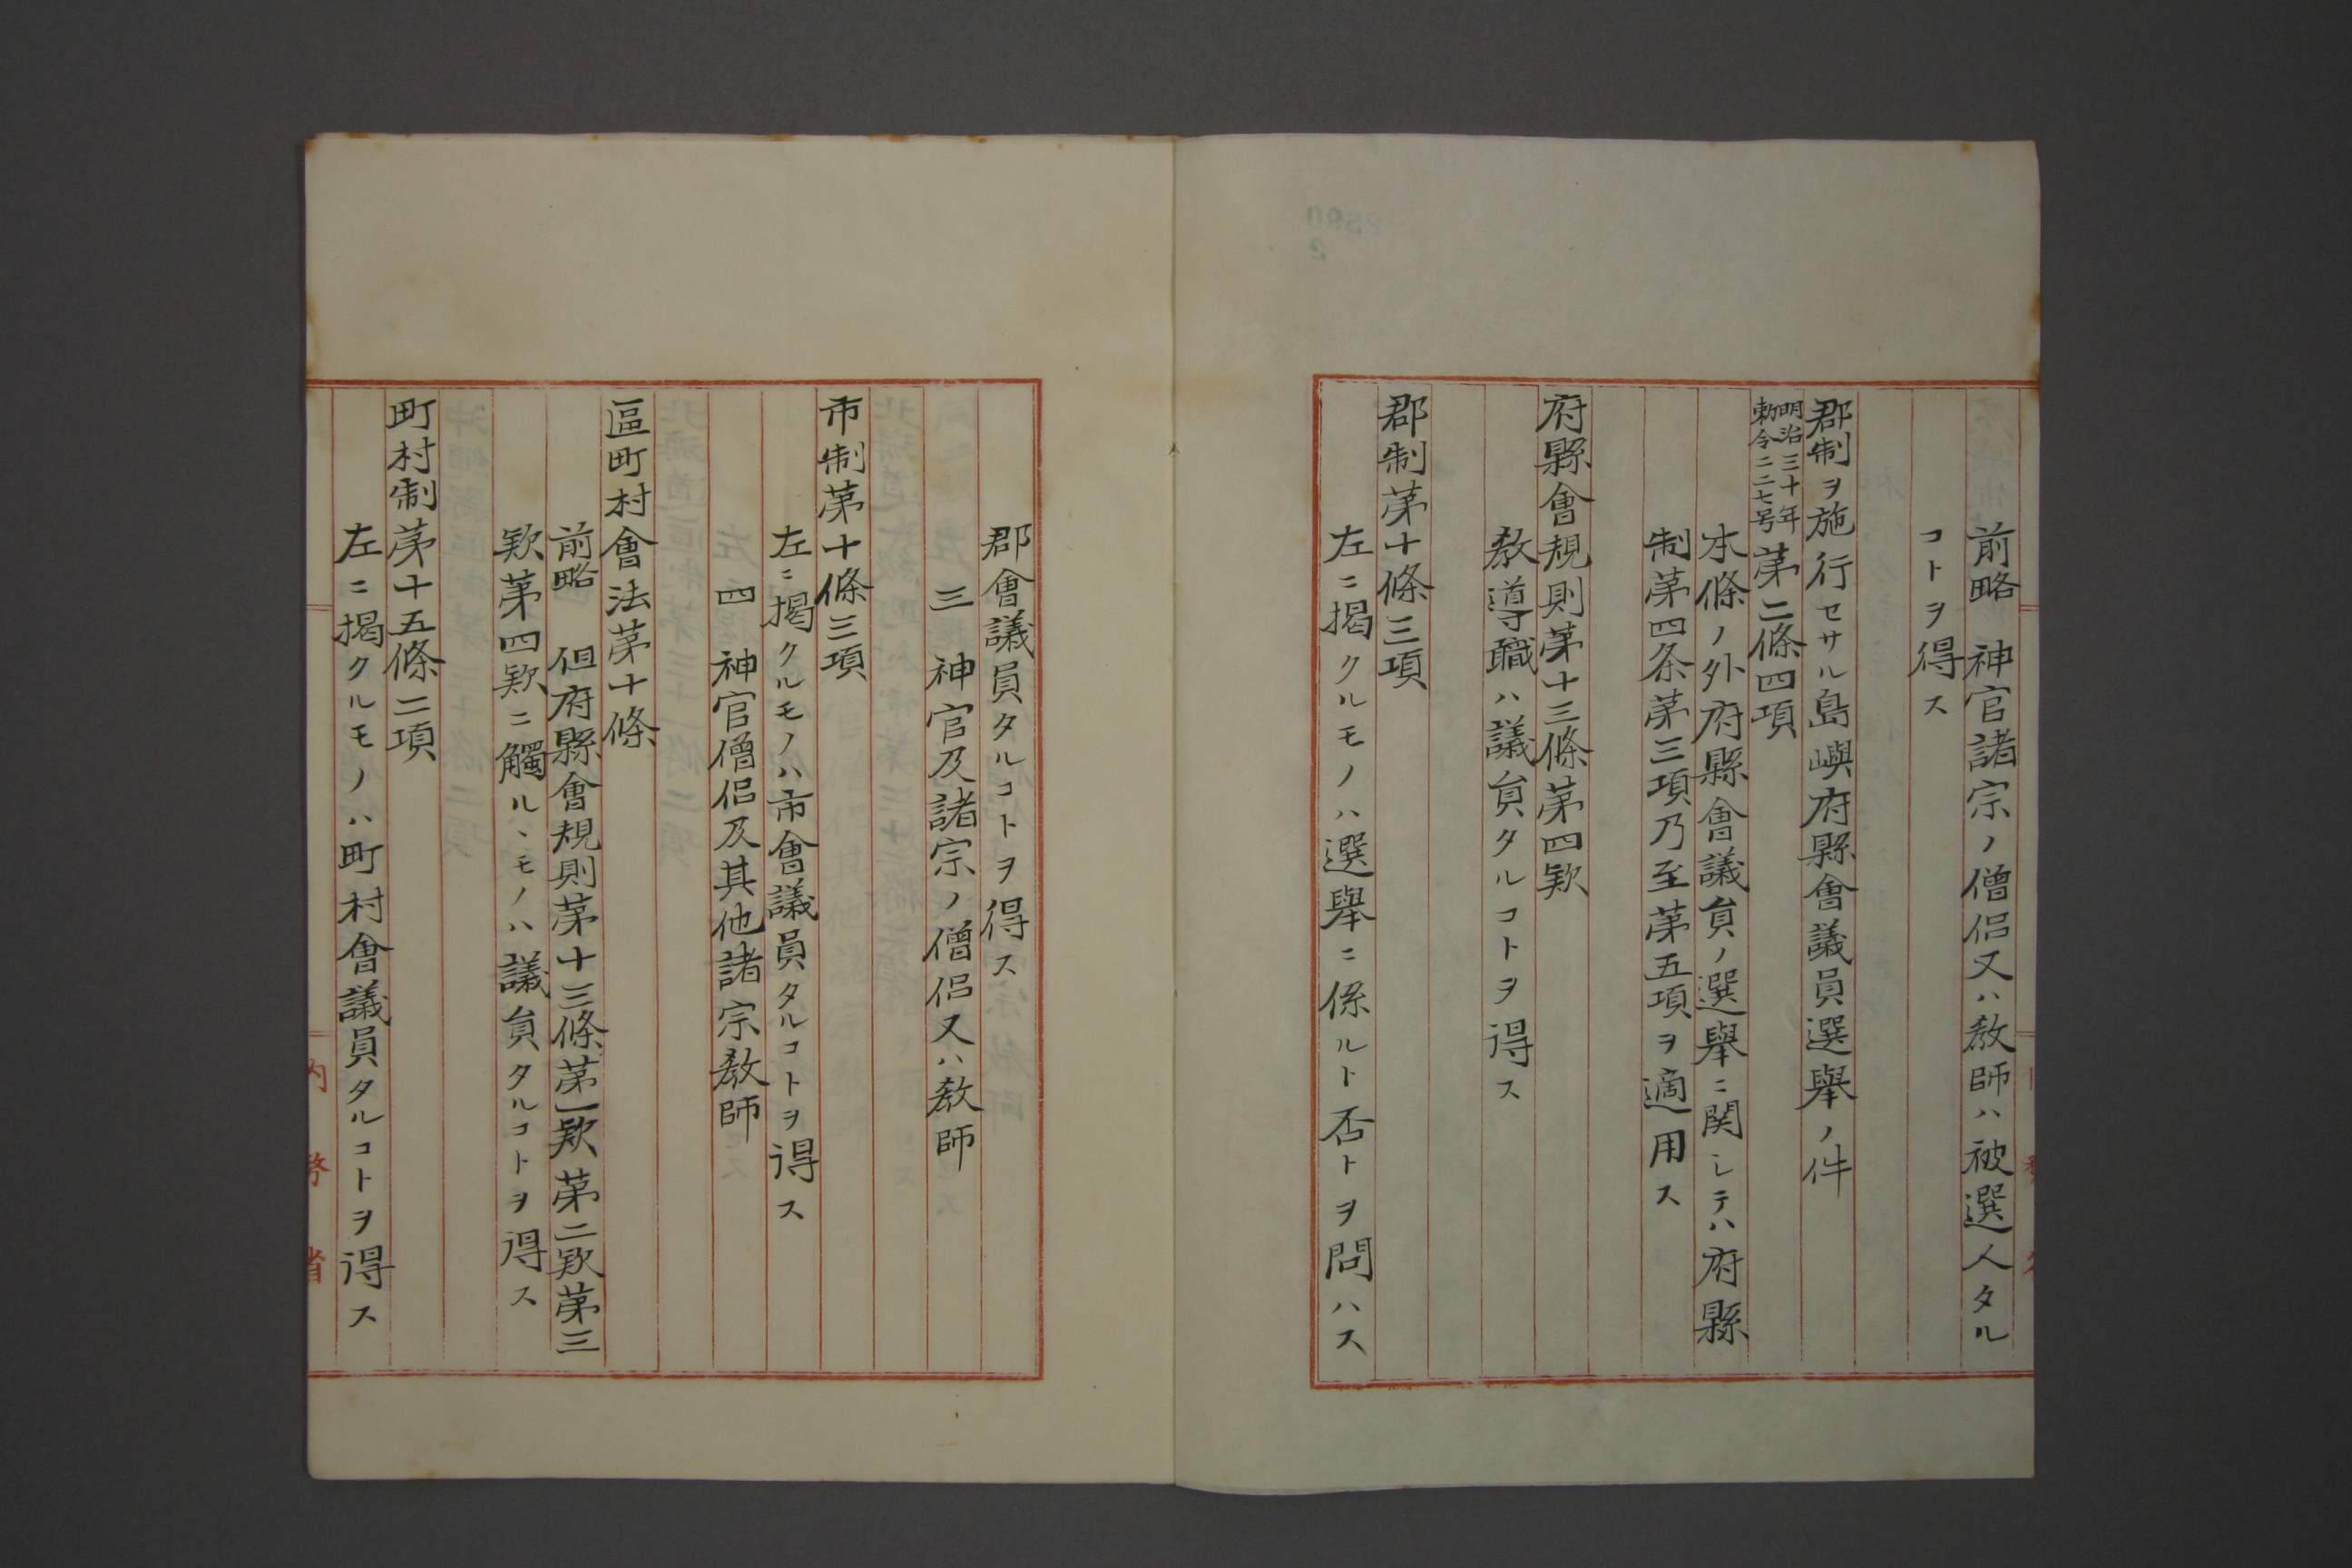 前略　神官諸宗ノ僧侶又ハ教師ハ被選人タル
コトヲ得ス
郡制ヲ施行セサル島嶼府縣會議員選舉ノ件
明治三十年
勅令二二七号
第二條四項
本條ノ外府縣會議員ノ選舉ニ関シテハ府縣
制第四条第三項乃至第五項ヲ適用ス
府縣會規則第十三條第四欵
教導職ハ議員タルコトヲ得ス
郡制第十條三項
左ニ揭クルモノハ選舉ニ係ルト否トヲ問ハス
郡會議員タルコトヲ得ス
三　神官及諸宗ノ僧侶又ハ教師
市制第十條三項
左ニ揭クルモノハ市會議員タルコトヲ得ス
四　神官僧侶及其他諸宗教師
區町村會法第十條
前略　但府縣會規則第十三條第一欵第二欵第三
欵第四欵ニ觸ルヽモノハ議員タルコトヲ得ス
町村制第十五條二項
左ニ揭クルモノハ町村會議員タルコトヲ得ス
内務省